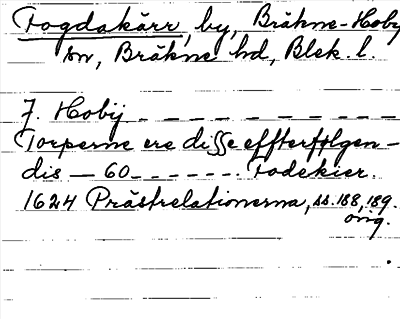 Fogdakärr, by, Bräkne-Hoby
sn, Bräkne hd, Blek. l.
J. Hobÿ - - - - - - - - - -
Torperne ere disse effterfølgen-
dis - 60 - - - - - - . Fodekier.
1624 Prästrelationerna, ss. 188, 189.
orig.